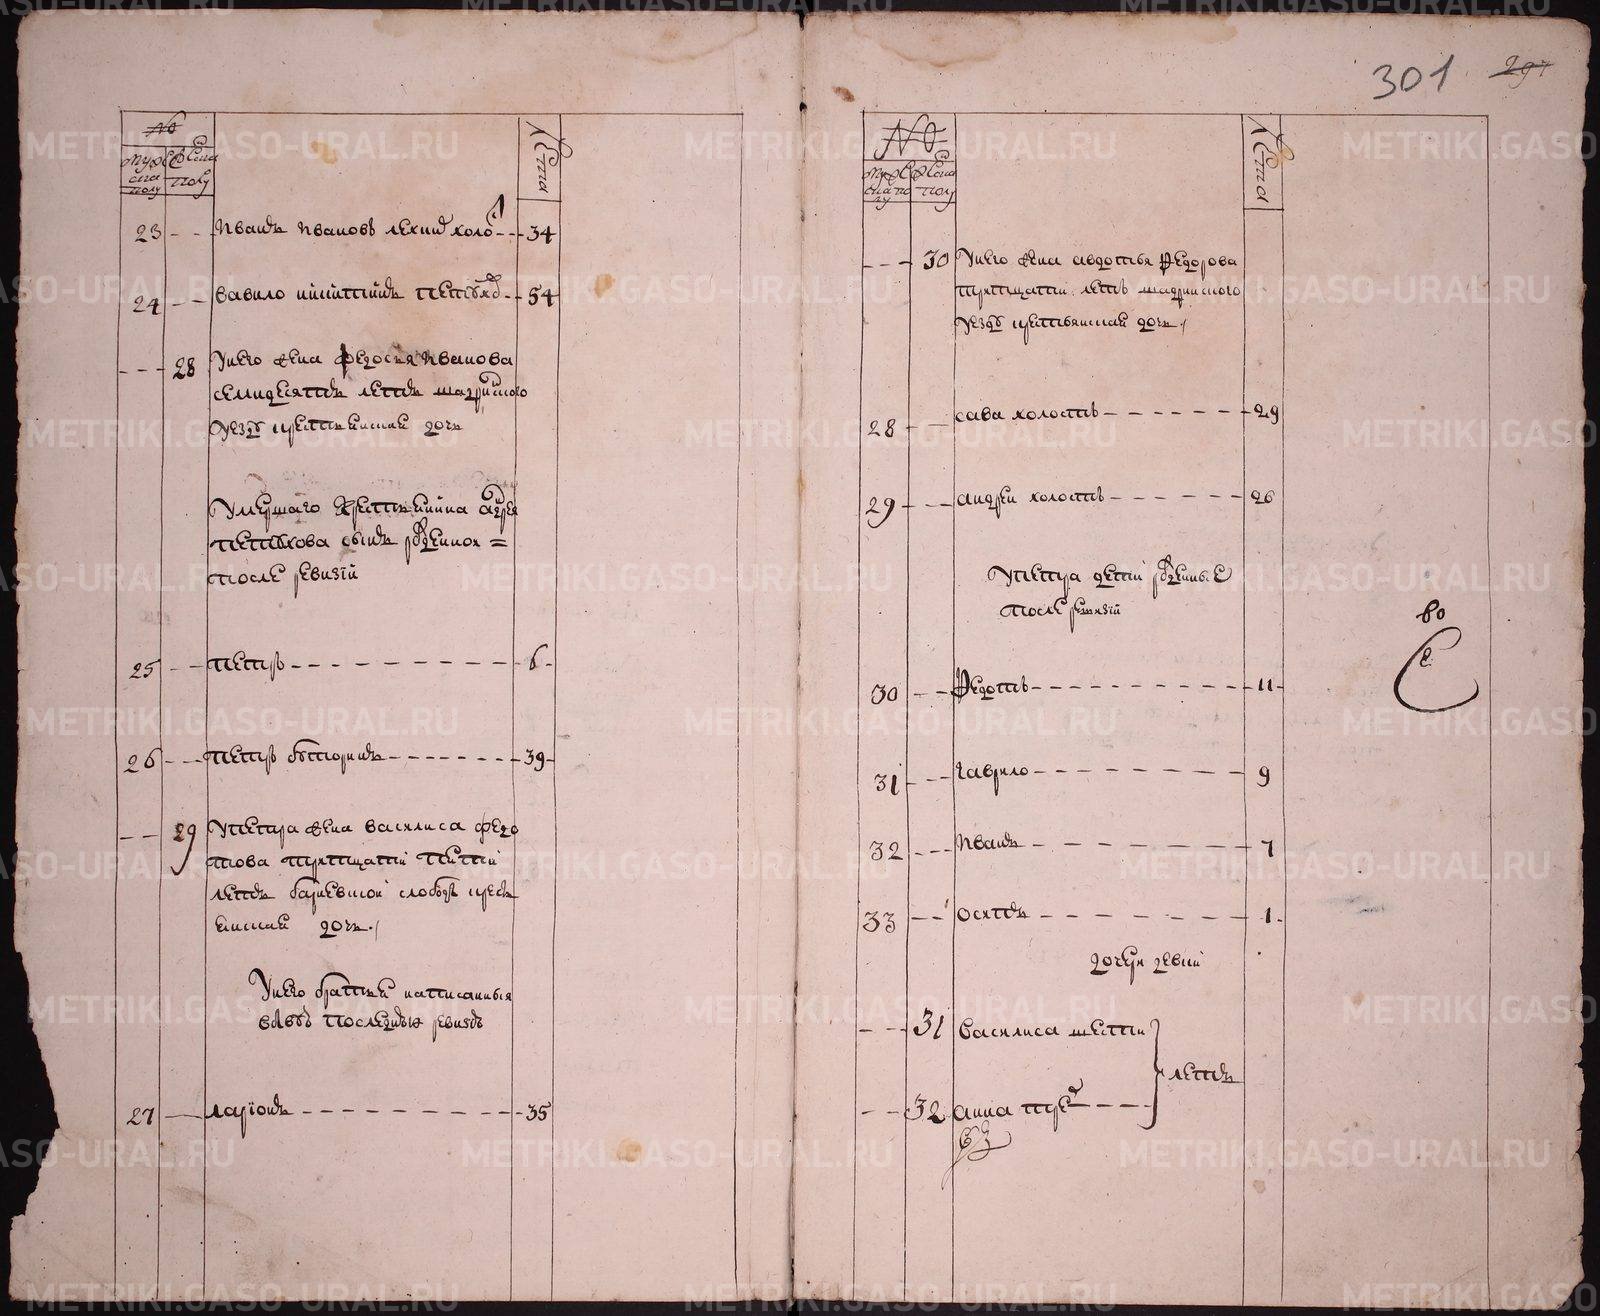 301
№
мужска полу
женска полу
лета
23 - - Иванъ Ивановъ лехинъ холо - - 34
24 - - вавило никитинъ Петуховъ - - 54
- - - 28 Унего жена федосья Иванова
семидесятъ летъ шадринского
уезду крестьянская дочь
Умершаго Крестьянина андрея
петухова сынъ рожденной =
после ревизии
25 - - петръ - - - - - - - - - - 6 -
26 - - петръ бутюринъ - - - - - - - 39 -
- - 29 Упетра жена василиса федо
това тритцати пети
летъ слободы кресть
янская дочь
Унего братьеи написанныя
последнеи ревизъ
27 — ларионъ - - - - - - - - - - 35
№
мужска полу
женска полу
лета
- - - 30 Унего жена авдотья Федорова
тритцати летъ шадринского
уезду крестьянская дочь
28 - - сава холостъ - - - - - - - 29
29 - - андреи холостъ - - - - - - 26
Упетра дети рожденные
после ревизии
во
30 - - Федотъ - - - - - - - - - - 11 -
31 - - - гаврило - - - - - - - - - 9
32 - - - Иванъ - - - - - - - - - 7
33 - - осипъ - - - - - - - - - 1 -
дочери девки
- - - 31 василиса шести
летъ
- - 32 анна трехъ - - - -